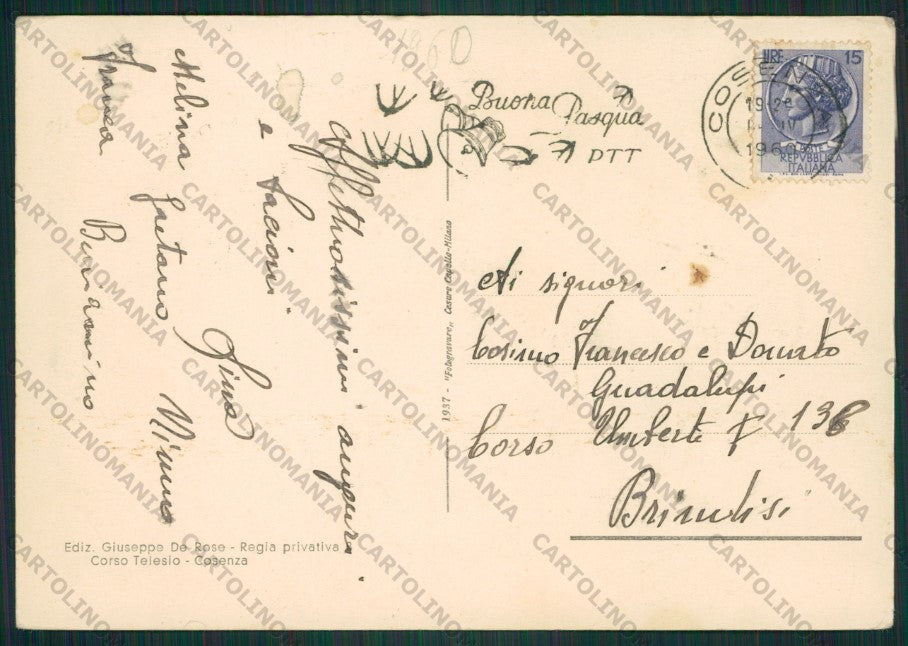 1960
Affettuosissimi auguri
e bacioni
Pino
Melina Gaetano Mimmo
Franca Beniamino
Buona
Pasqua
PTT
COSENZA
19-20
IV
1960
LIRE 15
POSTE
REPVBBLICA
ITALIANA
1937 - "Fotogravure„ Cesare Capello-Milano
Ai signori
Cosimo Francesco e Donato
Guadalupi
Corso Umberto I° 136
Brindisi
Ediz. Giuseppe De Rose - Regia privativa
Corso Telesio - Cosenza
CARTOLINOMANIA